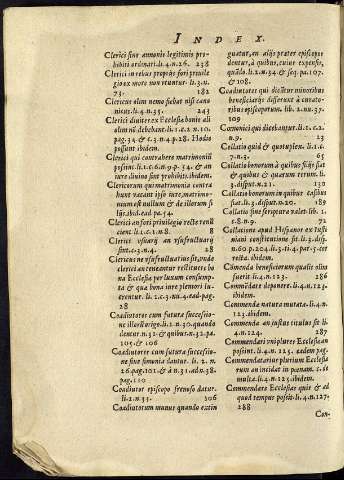 INDEX.
Clerici sine annonis legitimis pro-
hibiti ordinari.li.4.n.26. 238
Clerici in rebus propriis fori priuile
gio ex more non vtuntur. li.3.n.
73. 182
Clericus olim nemo fiebat nisi cano
nicus.li.4.n.35. 243
Clerici diuites ex Ecclesiæ bonis ali
olim nō debebant.li.1.c.2.n.10.
pag.34 & c.3.n.4.p.28. Hodie
possunt ibidem.
Clerici qui contrahere matrimonii
possint.li.1.c.6.n.9.p.34. & an
iure diuino sint prohibiti.ibidem.
Clericorum qui matrimonia contra
hunt vacant ipso iure. matrimo-
nium est nullum & de illorum fi
liis.ibid.ead.pa.34.
Clerici an fori priuilegio recte renū
cient.li.1.c.1.n.8. 8
Clerici vsuarii an vsufructuarii
sint.c.3.n.4. 28
Clericus ne vsufructuarius sit.ando
clerici an teneantur restituere bo
na Ecclesiæ per luxum consump-
ta & qua bona iure pleniori lu-
crentur. li.1.c.3.nu.4.ead.pag.
28
Coadiutores cum futura successio-
ne illusorii sīt.li.2.n.30.quando
dentur.n.31.& quibus.n.32.pa.
105. & 106
Coadiutores cum futura successio-
ne sine simonia dantur. li. 2. n.
26.pag.101.& à n.31.ad n.38.
pag.110
Coadiutor episcopo frenoso datur.
li.2.n.33. 106
Coadiutorum munus quando extin
guatur, an aliis præter episcopos
dentur, à quibus, cuius expensis,
qualis.li.2.n.34.& seq.pa.107.
& 108.
Coadiutores qui dicūtur minoribus
beneficiariis differunt à curato-
ribus episcoporum.lib. 2.nu.37.
109
Canonici qui dicebantur.li.1.c.2.
n.9. 23
Collatio quid & quotuplex. li.1.c.
7.n.3. 65
Collatio bonorum à quibus fieri fiat
& quibus & quarum rerum. li.
3.disput.n.21. 130
Collatio bonorum in quibus casibus
fiat.li.3.disput.n.20. 189
Collatio sine scriptura valet lib. 1.
c.8.n.9.
Collatione apud Hispanos ex Iusti
niani constitutione sit.li.3.disp.
n.60.p.204.li.3.li.4.par.3.cor
rectà. ibidem.
Cōmenda beneficiorum qualis olim
fuerit.li.4.n.123. 286
Commēdare deponere.li.4.n.123.
ibidem.
Commenda natura mutata.li.4.n.
123.ibidem.
Commenda an iustus titulus sit li.
4.n.124. 287
Commendari vniplures Ecclesiæ an
possunt.li.4.n.125. eadem pag.
Commendatarius plurium Ecclesia
rum an incidat in pœnam. c. de
multa.li.4.n.125.ibidem.
Commendare Ecclesias quis & ad
quod tempus possit.li.4.n.127.
288
Con-